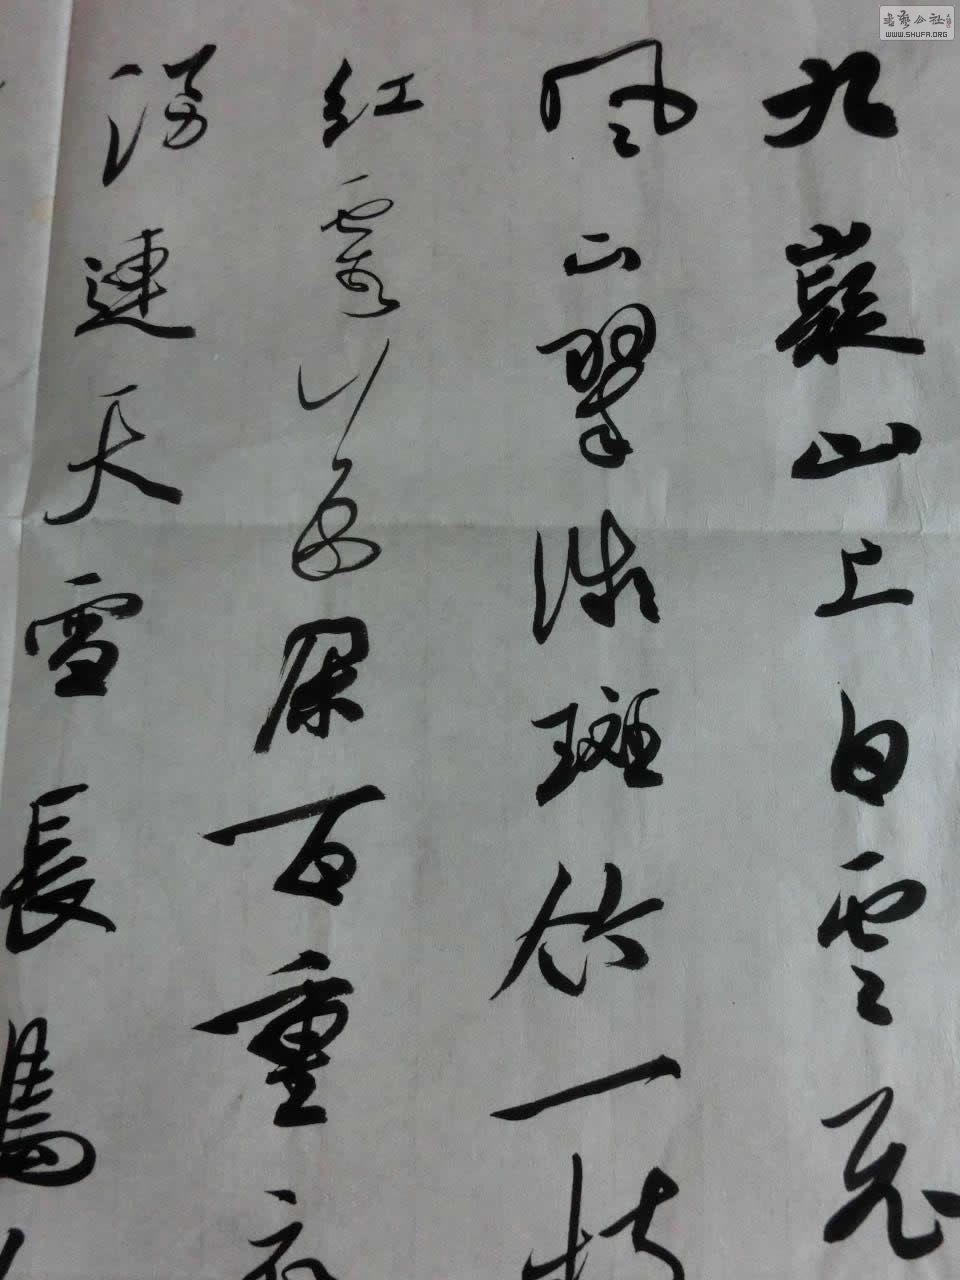 書藝公社
WWW.SHUFA.ORG
九嶷山上白雲飛
風下翠微斑竹一枝
紅霞萬朵百重衣
湧連天雪長島人